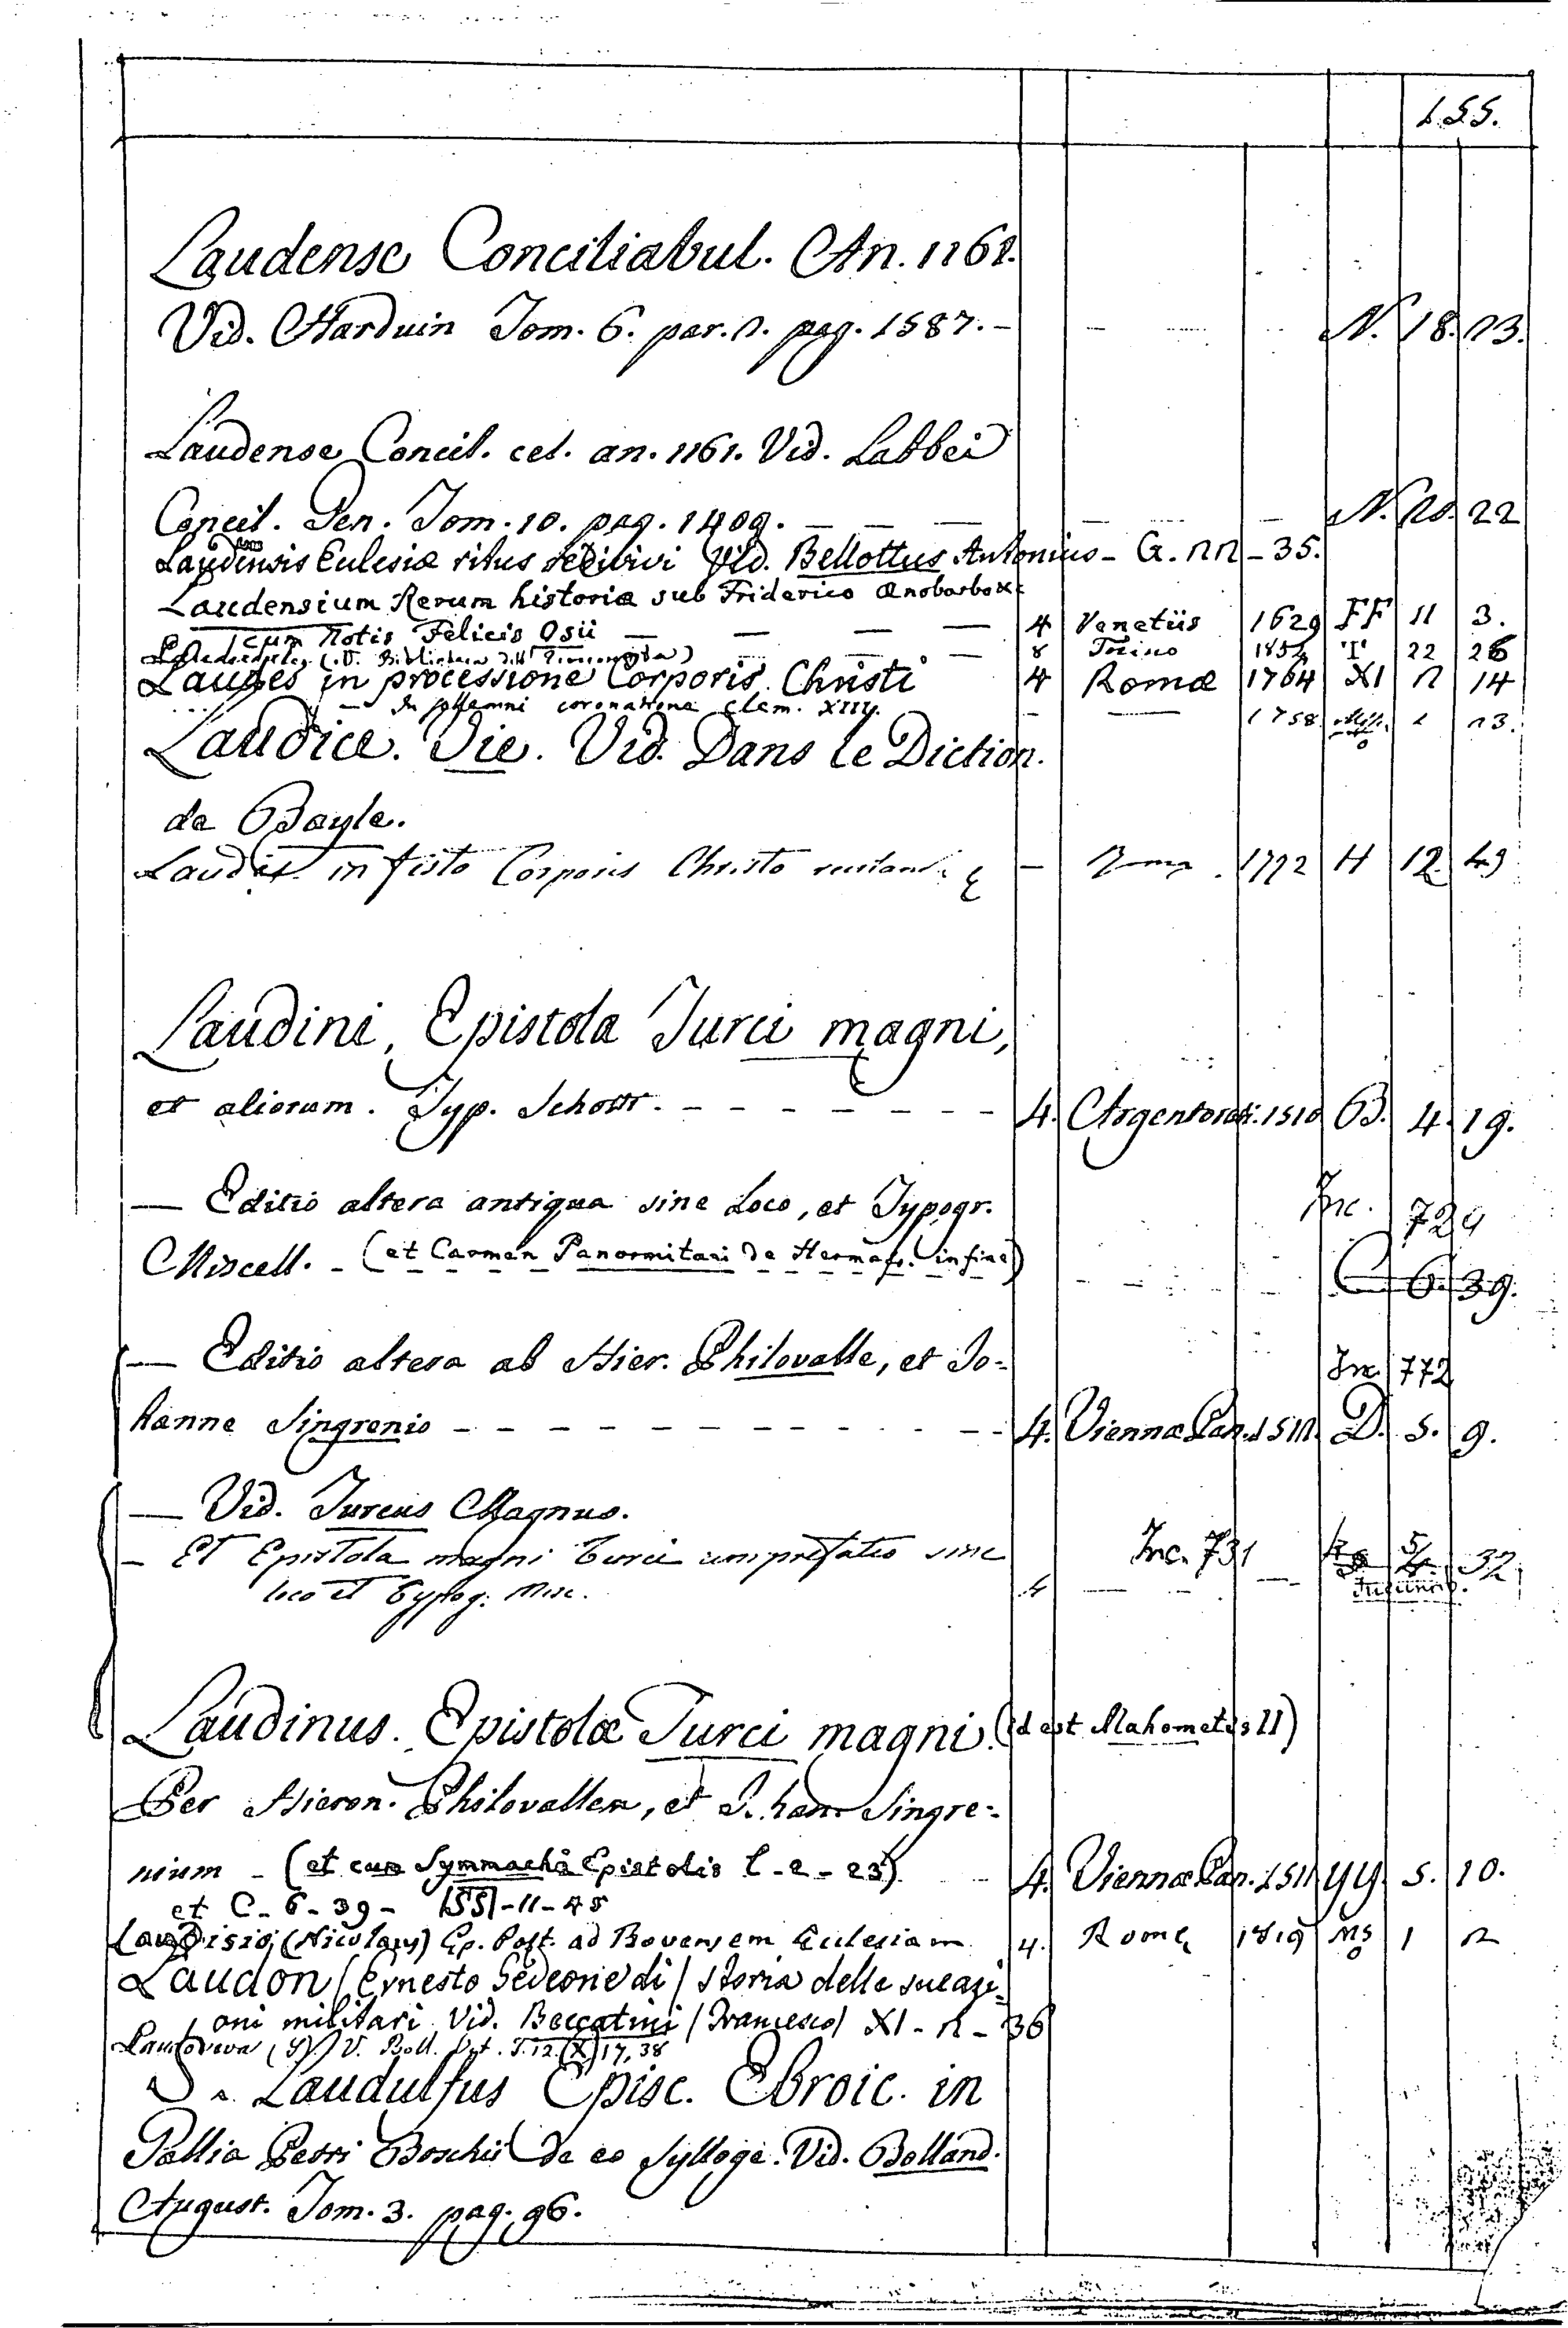 155.
Laudense Conciliabul. An. 1161.
Vid. Harduin Tom. 6. par. 2. pag. 1587. - N. 18. 23.
Laudense Concil. cel. an. 1161. Vid. Labbei
Concil. Gen. Tom. 10. pag. 1409. — — — N. 20. 22
Laudensis Eclesiæ ritus Vid. Bellottus Antonius - G. 22 - 35.
Laudensium Rerum historia sub Friderico Ænobarbo &
cum Notis Felicis Osii — — — — 4 Venetiis 1629 FF 11 3.
(V. Biblioteca dell' ) — — — 8 Torino 1852 T 22 26
Laudes in processione Corporis Christi 4 Romæ 1764 XI 2 14
— In solemni coronatione Clem. XIII. - — 1758 23.
Laudice. Vie. Vid. Dans le Diction.
de Bayle.
Laudes in festo Corporis Christo — Roma. 1772 H 12 49
Laudini, Epistola Turci magni,
et aliorum. Typ. Schott. - - - - - - - 4. Argentorati. 1510 B. 4. 19.
— Editio altera antiqua sine Loco, et Typogr. Inc. 724
Miscell. - (et Carmen Panormitani de Hermafr. in fine) C 6. 39.
— Editio altera ab Hier. Philovalle, et Jo- Inc. 772
hanne Singrenio - - - - - - - - - - 4. Viennæ Pan. 1512. D. 5. 9.
— Vid. Turcus Magnus.
— Et Epistola magni Turci cum prefatio sine Inc. 731 32
loco et Typog. Misc. 4 — - —
Laudinus. Epistolæ Turci magni. (id est Mahometis II)
Per Hieron. Philovallem, et Johan Singre-
nium - (et cum Symmachi Epistolis L - 2 - 23) 4. Viennæ Pan. 1511 YY. 5. 10.
et C - 6 - 39 - 155 - 11 - 45
Laudisio (Nicolaus) Ep. Post. ad Bovensem Ecclesiam 4. Romæ 1819 MS 1 2
Laudon (Ernesto Gedeone di) Storia delle sue azi-
oni militari. Vid. Beccatini (Francesco) XI - 2 - 36
V. Boll. Oct. T. 12. (X) 17, 38
S. Laudulfus Episc. Ebroic. in
Gallia Petri Boschii de eo Sylloge. Vid. Bolland.
August. Tom. 3. pag. 96.